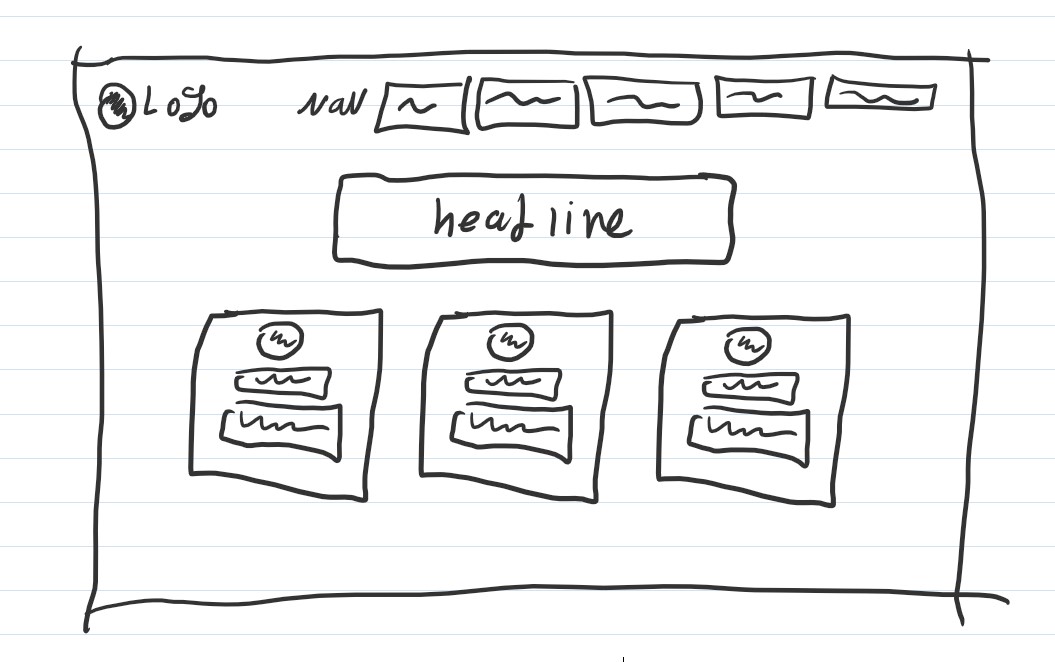 LOGO NaN
headline